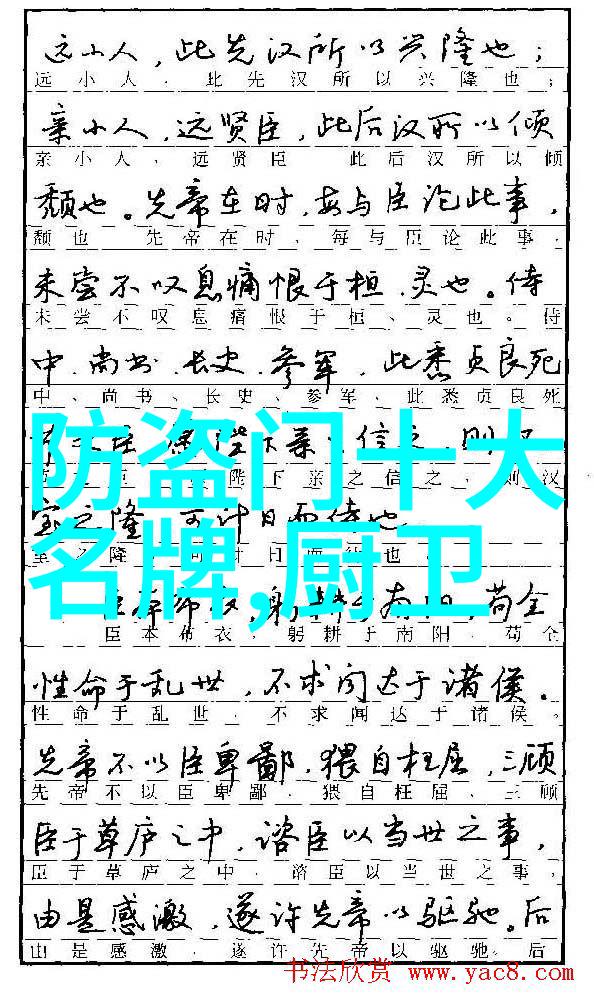 远小人，此先汉所以兴隆也；
远小人，此先汉所以兴隆也；
亲小人，远贤臣，此后汉所以倾
亲小人、远贤臣 此后汉所以倾
颓也。先帝在时，每与臣论此事，
颓也 先帝在时，每与臣论此事，
未尝不叹息痛恨于桓、灵也。侍
未尝不叹息痛恨于桓、灵也。侍
中、尚书、长史、参军，此悉贞良死
中、尚书、长史、参军、此悉贞良死
陛下亲之信之，则
陛下亲之信之，则汉
防盗门十大
室之隆，可计日而待也
室 隆 计日 也
名牌,厨卫
臣本布衣，躬耕于南阳，苟全
臣本布衣，躬耕于南阳，苟全
性命于乱世，不求闻达于诸侯。
性命于乱世，不求闻达于诸侯。
先帝不以臣卑鄙，猥自枉屈，三顾
先帝不以臣卑鄙，猥自枉屈、三顾
臣于草庐之中，谘臣以当世之事，
臣于草庐之中，谘臣以当世之事，
由是感激，遂许先帝以驱驰。后
由是感激，遂许先帝以驱驰。后
书法欣赏 www.yac8.com